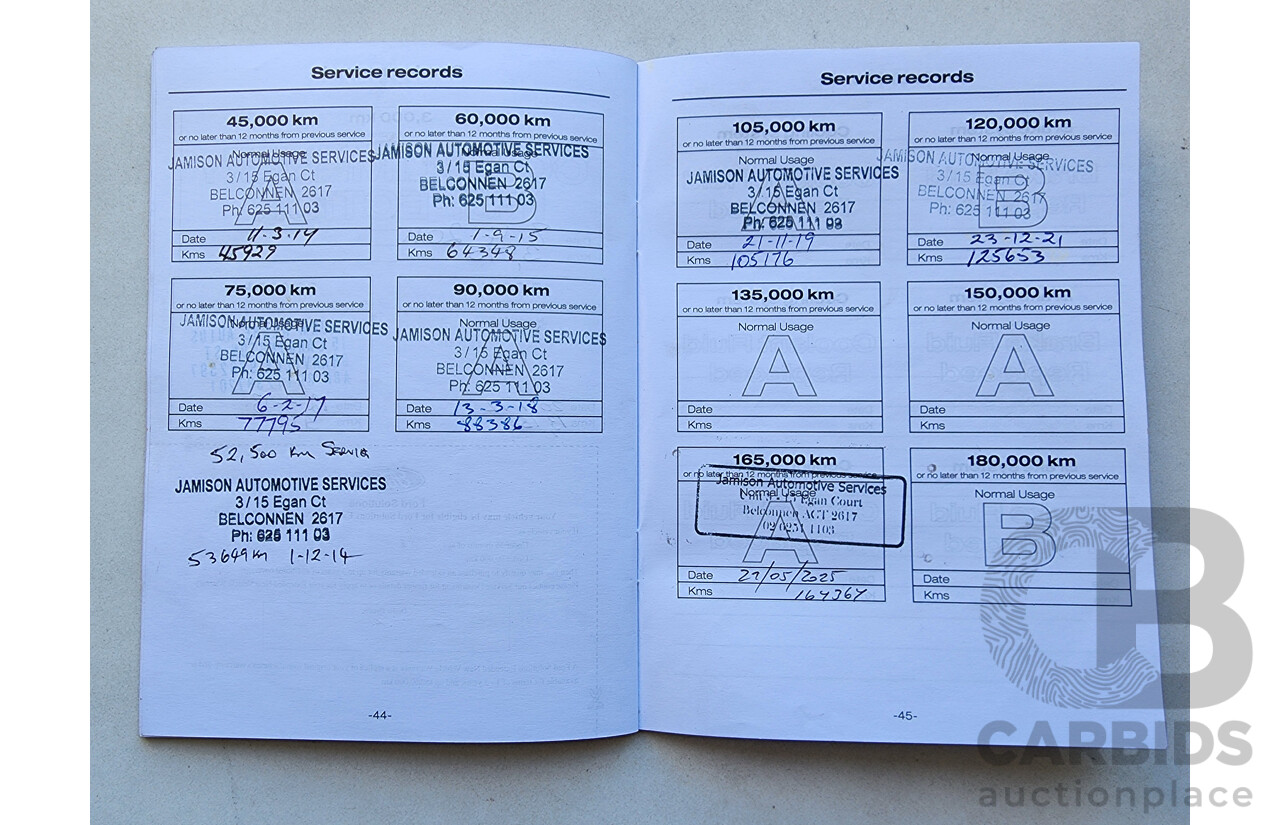 Service records
45,000 km
or no later than 12 months from previous service
Normal Usage
A
JAMISON AUTOMOTIVE SERVICES
3/15 Egan Ct
BELCONNEN 2617
Ph: 625 111 03
Date 11-3-14
Kms 45929
60,000 km
or no later than 12 months from previous service
Normal Usage
B
JAMISON AUTOMOTIVE SERVICES
3/15 Egan Ct
BELCONNEN 2617
Ph: 625 111 03
Date 1-9-15
Kms 64348
75,000 km
or no later than 12 months from previous service
Normal Usage
A
JAMISON AUTOMOTIVE SERVICES
3/15 Egan Ct
BELCONNEN 2617
Ph: 625 111 03
Date 6-2-17
Kms 77795
90,000 km
or no later than 12 months from previous service
Normal Usage
A
JAMISON AUTOMOTIVE SERVICES
3/15 Egan Ct
BELCONNEN 2617
Ph: 625 111 03
Date 13-3-18
Kms 88386
52,500 km Service
JAMISON AUTOMOTIVE SERVICES
3/15 Egan Ct
BELCONNEN 2617
Ph: 625 111 03
53649km 1-12-14
-44-
Service records
105,000 km
or no later than 12 months from previous service
Normal Usage
A
JAMISON AUTOMOTIVE SERVICES
3/15 Egan Ct
BELCONNEN 2617
Ph: 625 111 03
Date 21-11-19
Kms 105176
120,000 km
or no later than 12 months from previous service
Normal Usage
B
JAMISON AUTOMOTIVE SERVICES
3/15 Egan Ct
BELCONNEN 2617
Ph: 625 111 03
Date 23-12-21
Kms 125653
135,000 km
or no later than 12 months from previous service
Normal Usage
A
Date
Kms
150,000 km
or no later than 12 months from previous service
Normal Usage
A
Date
Kms
165,000 km
or no later than 12 months from previous service
Normal Usage
A
Jamison Automotive Services
Egan Court
Belconnen ACT 2617
02 6251 1103
Date 21/05/2025
Kms 164364
180,000 km
or no later than 12 months from previous service
Normal Usage
B
Date
Kms
-45-
CB
CARBIDS
auctionplace